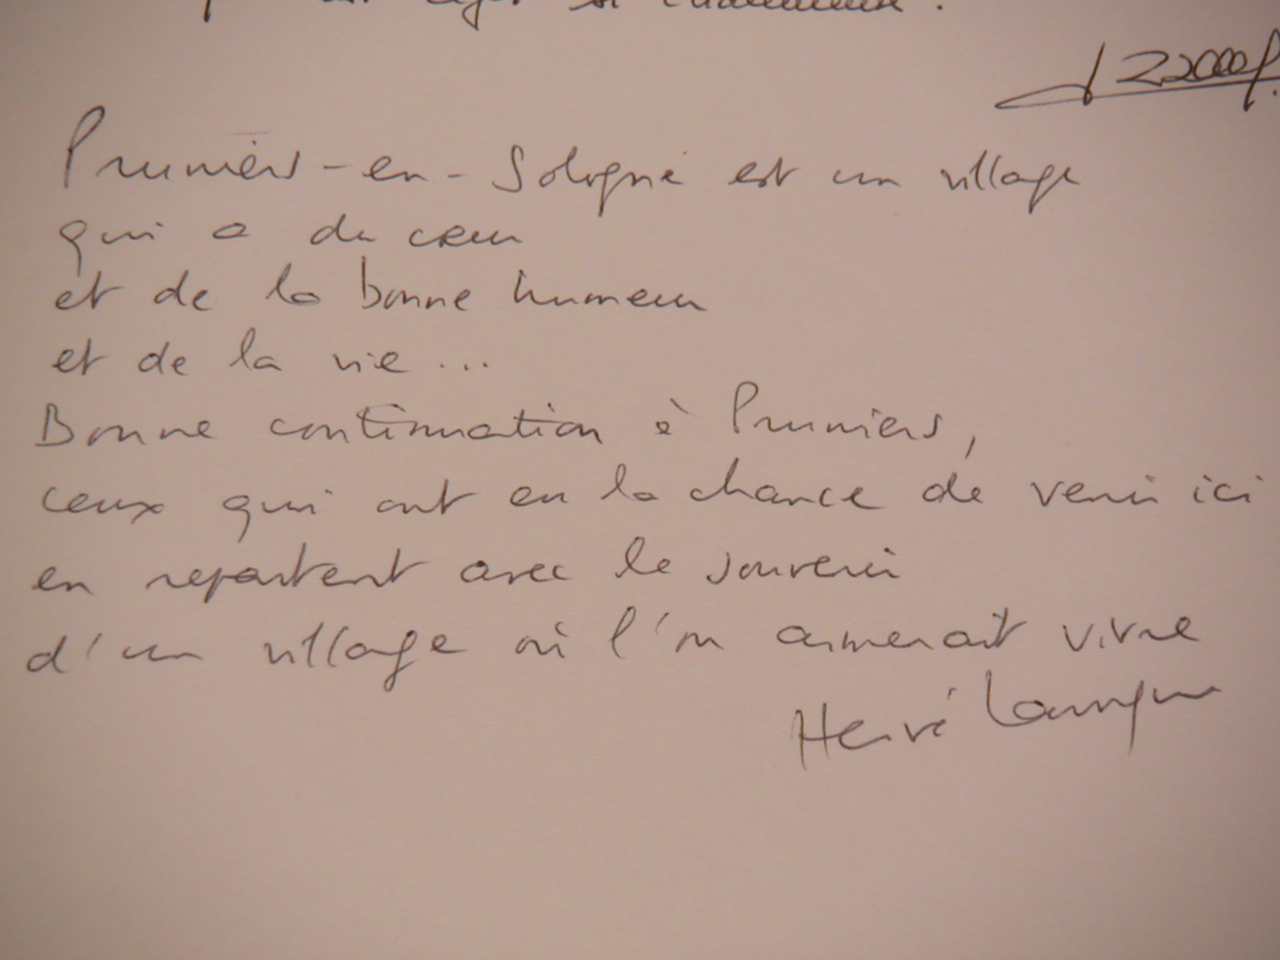 est léger et chaleureux.
Pruniers-en-Sologne est un village
qui a du cœur
et de la bonne humeur
et de la vie...
Bonne continuation à Pruniers,
ceux qui ont eu la chance de venir ici
en repartent avec le souvenir
d'un village où l'on aimerait vivre
Hervé